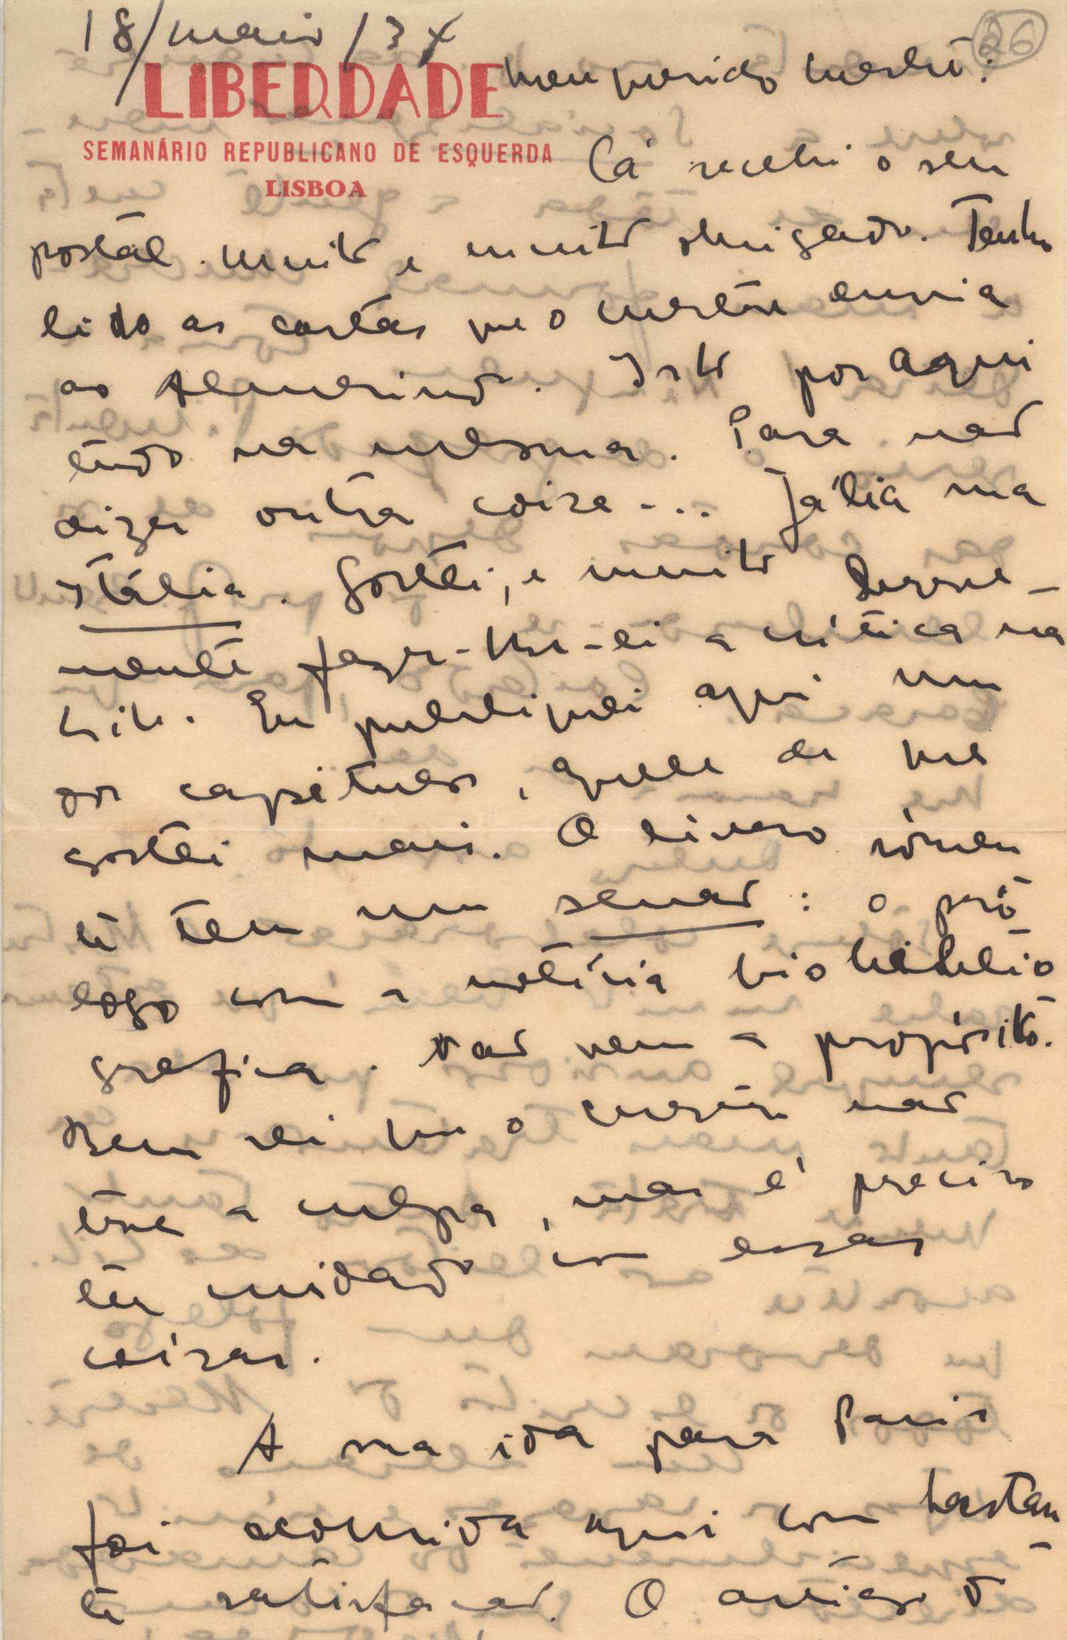 18/maio/34
26
LIBERDADE
SEMANÁRIO REPUBLICANO DE ESQUERDA
LISBOA
Meu querido Mestre:
Cá recebi o seu
postal. Muito e muito obrigado. Tenho
lido as cartas que o mestre envia
ao Almerindo. Isto por aqui
tudo na mesma. Para não
dizer outra coisa... Já lia sua
Itália. Gostei, e muito. Breve-
mente fazer-lhe-ei a crítica na
Lib. Eu publiquei aqui um
dos capítulos, aquele de que
gostei mais. O livro sómen
te tem um senão: o pró
logo com a notícia bio biblio
gráfica. Não vem a propósito.
Bem sei que o mestre não
teve a culpa, mas é preciso
ter cuidado com essas
coisas.
A sua ida para Paris
foi acolhida aqui com bastan
te satisfação. O artigo d